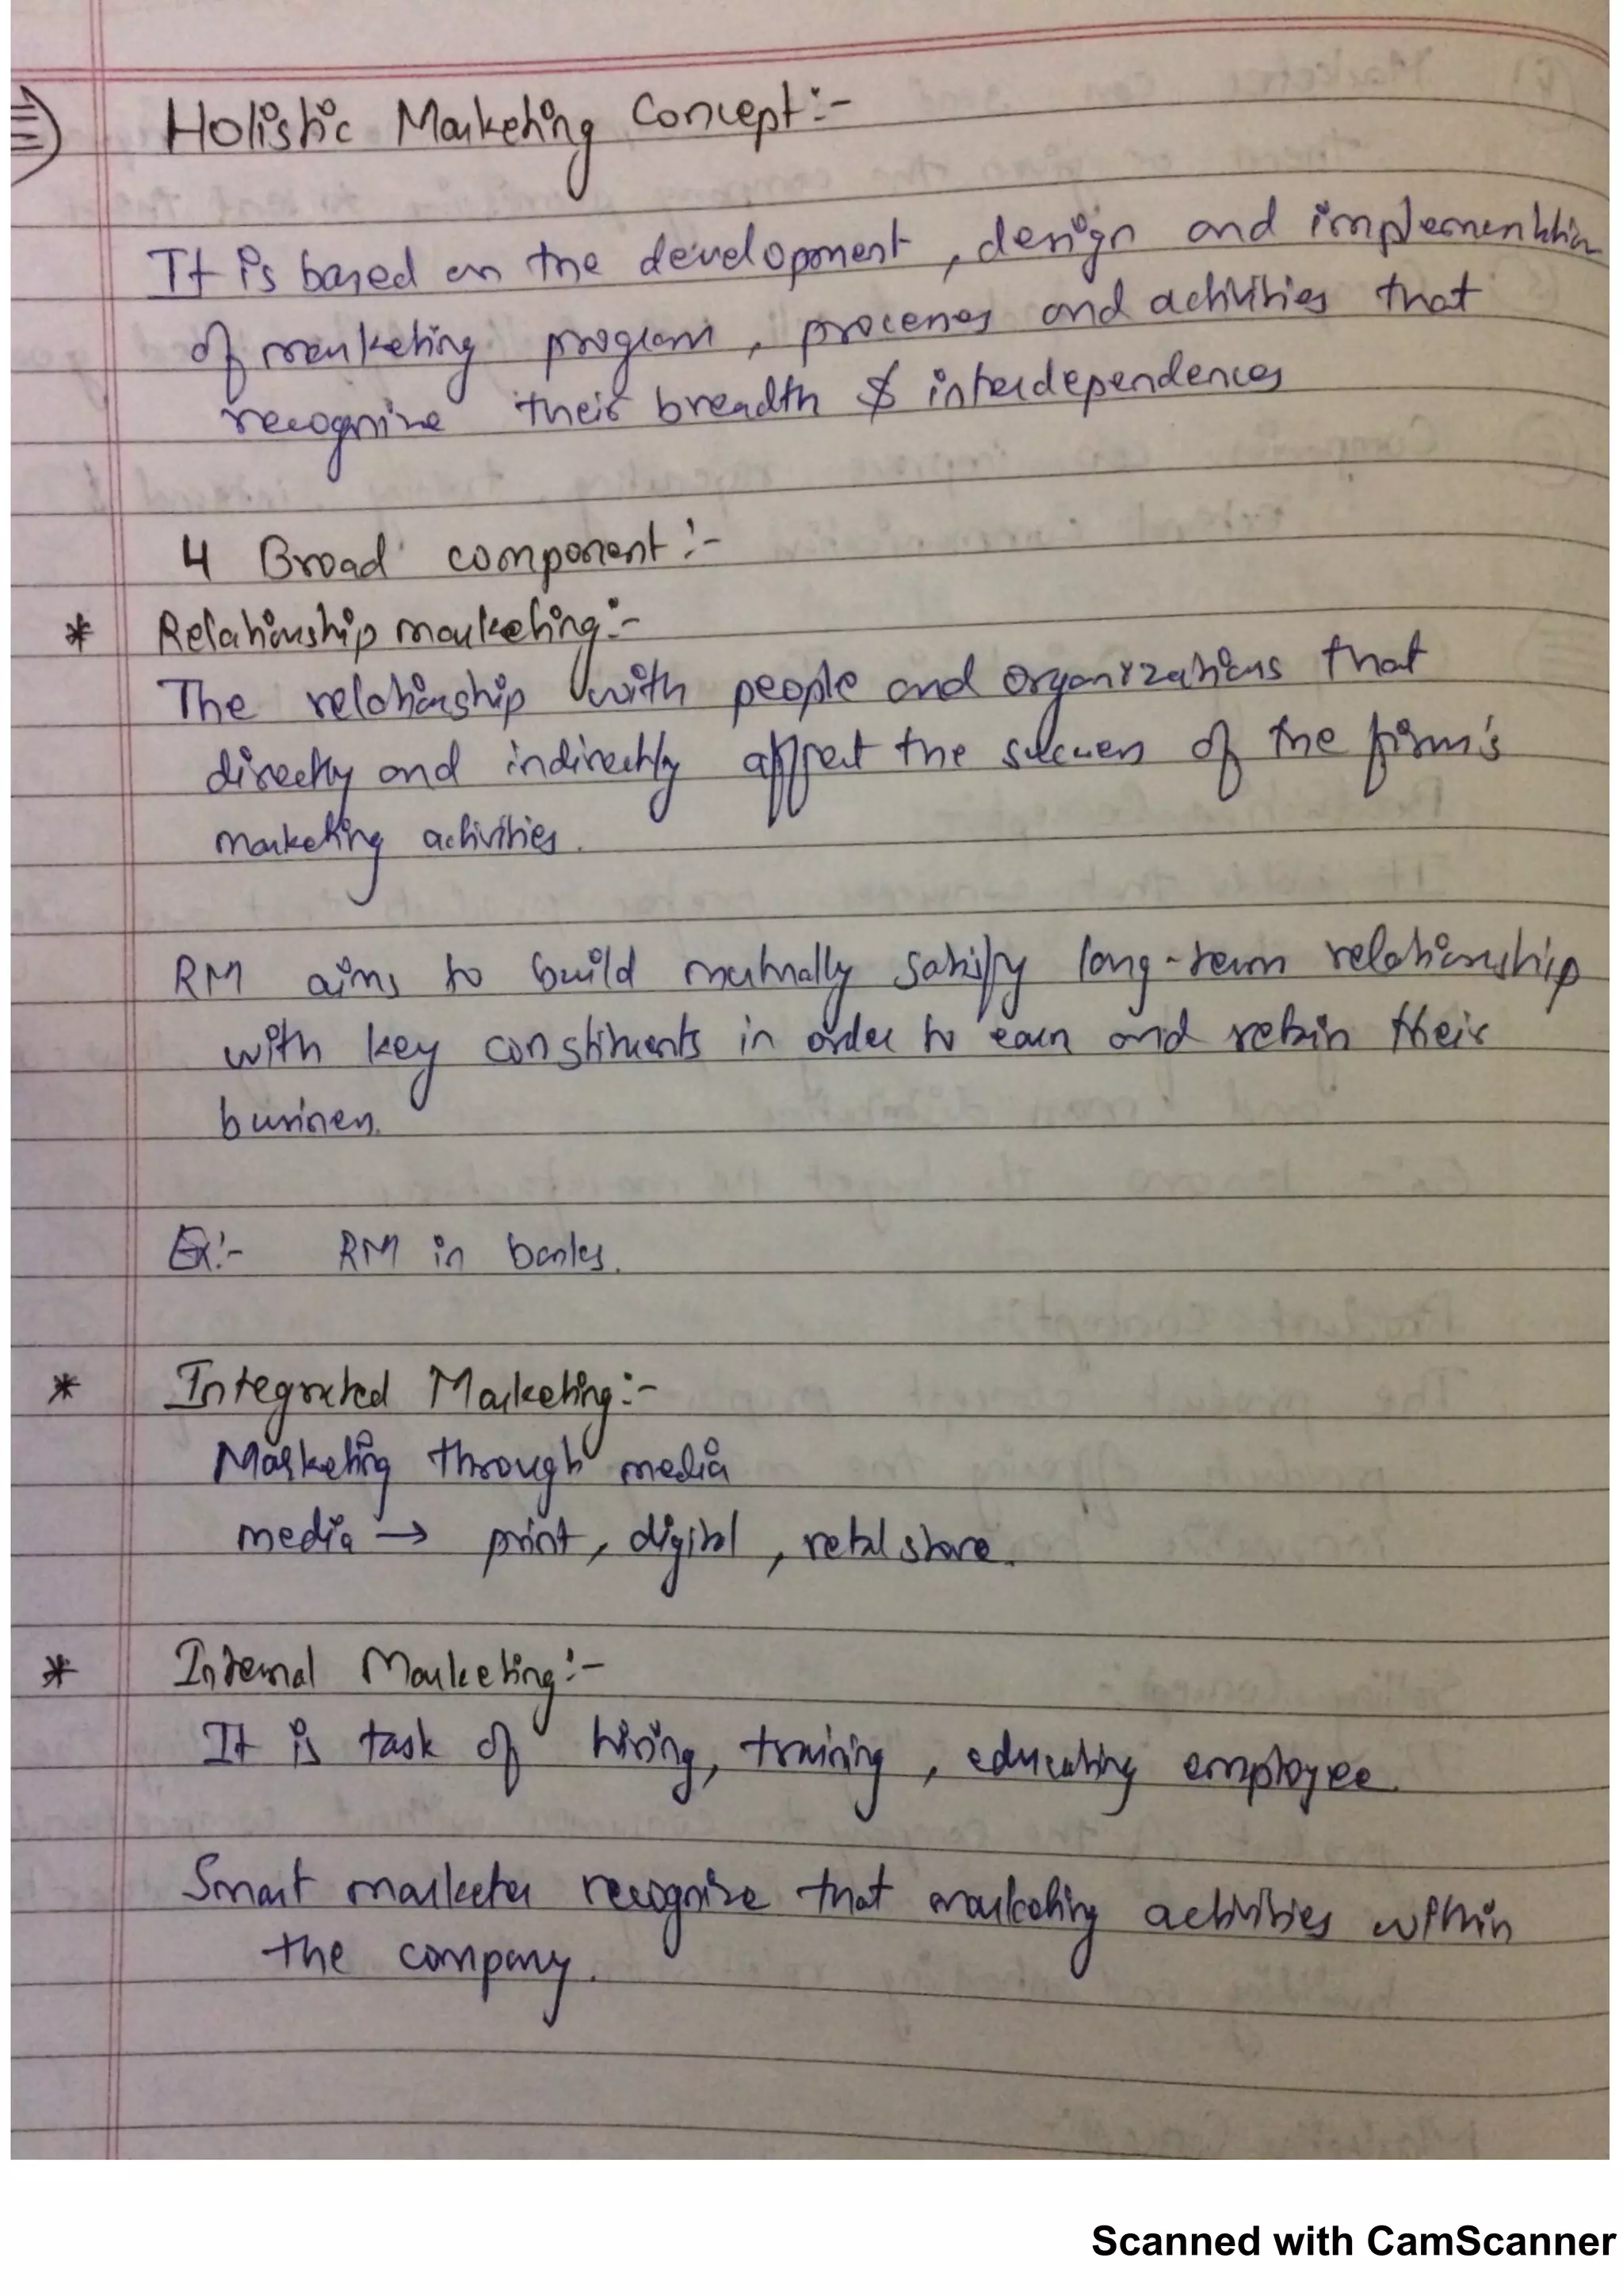 Holistic Marketing Concept:-
It is based on the development, design and implementation
of marketing program, processes and activities that
recognize their breadth & interdependences
4 Broad component:-
* Relationship marketing:-
The relationship with people and organizations that
directly and indirectly affect the success of the firm's
marketing activities.
RM aims to build mutually satisfy long-term relationship
with key constituents in order to earn and retain their
business.
Ex:- RM in banks.
* Integrated Marketing:-
Marketing through media
media → print, digital, retal store.
* Internal Marketing:-
It is task of hiring, training, educating employee.
Smart marketer recognize that marketing activities within
the company.
Scanned with CamScanner